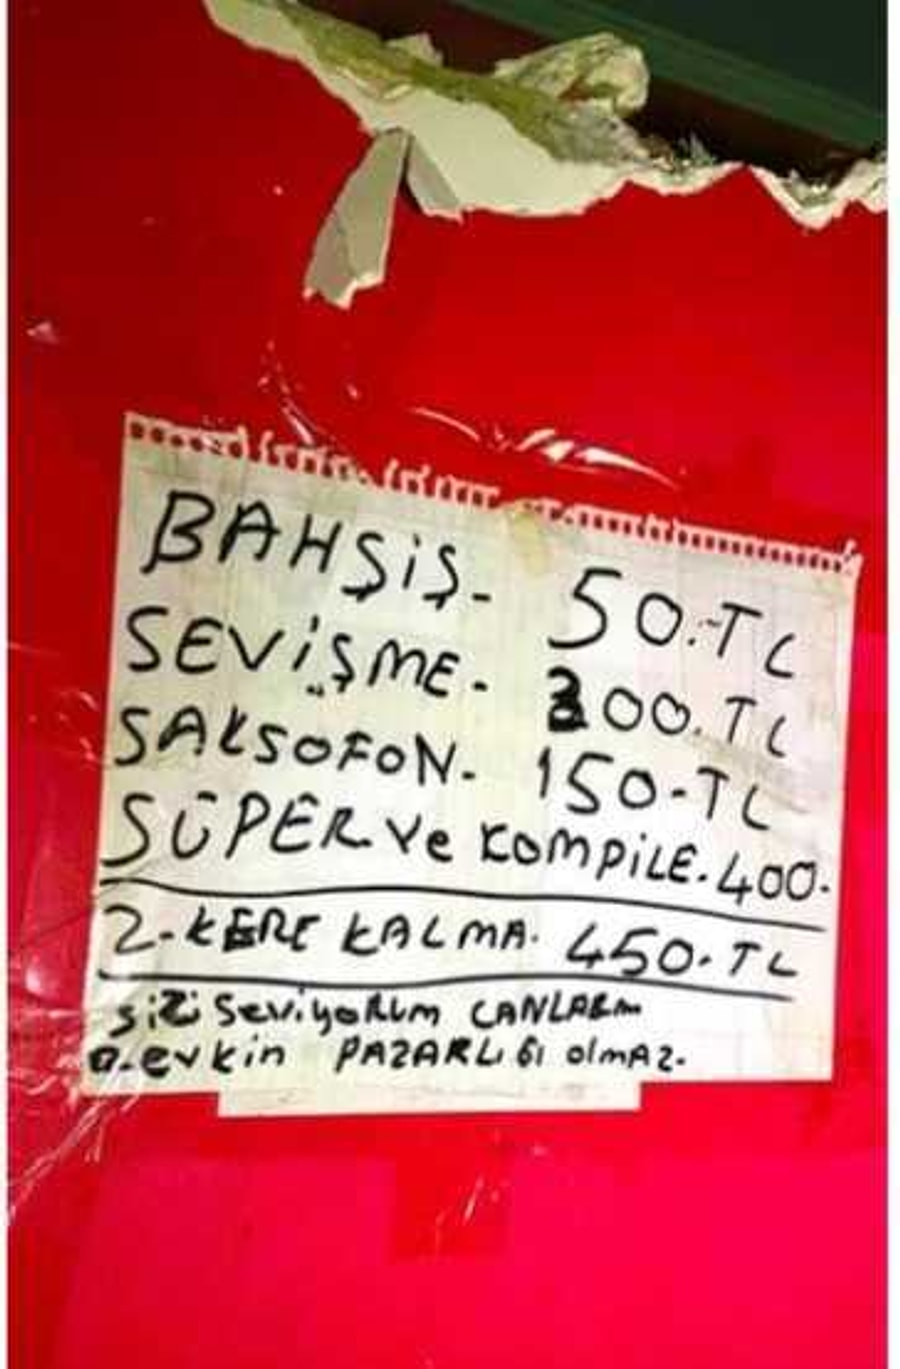 BAHŞİŞ- 50.-TL
SEVİŞME- 300.TL
SAKSOFON- 150-TL
SÜPER Ve KOMPİLE.400.
2-KERE KALMA. 450.TL
SİZİ Seviyorum CANLARIM
a.evkin PAZARLIĞI olmaz.